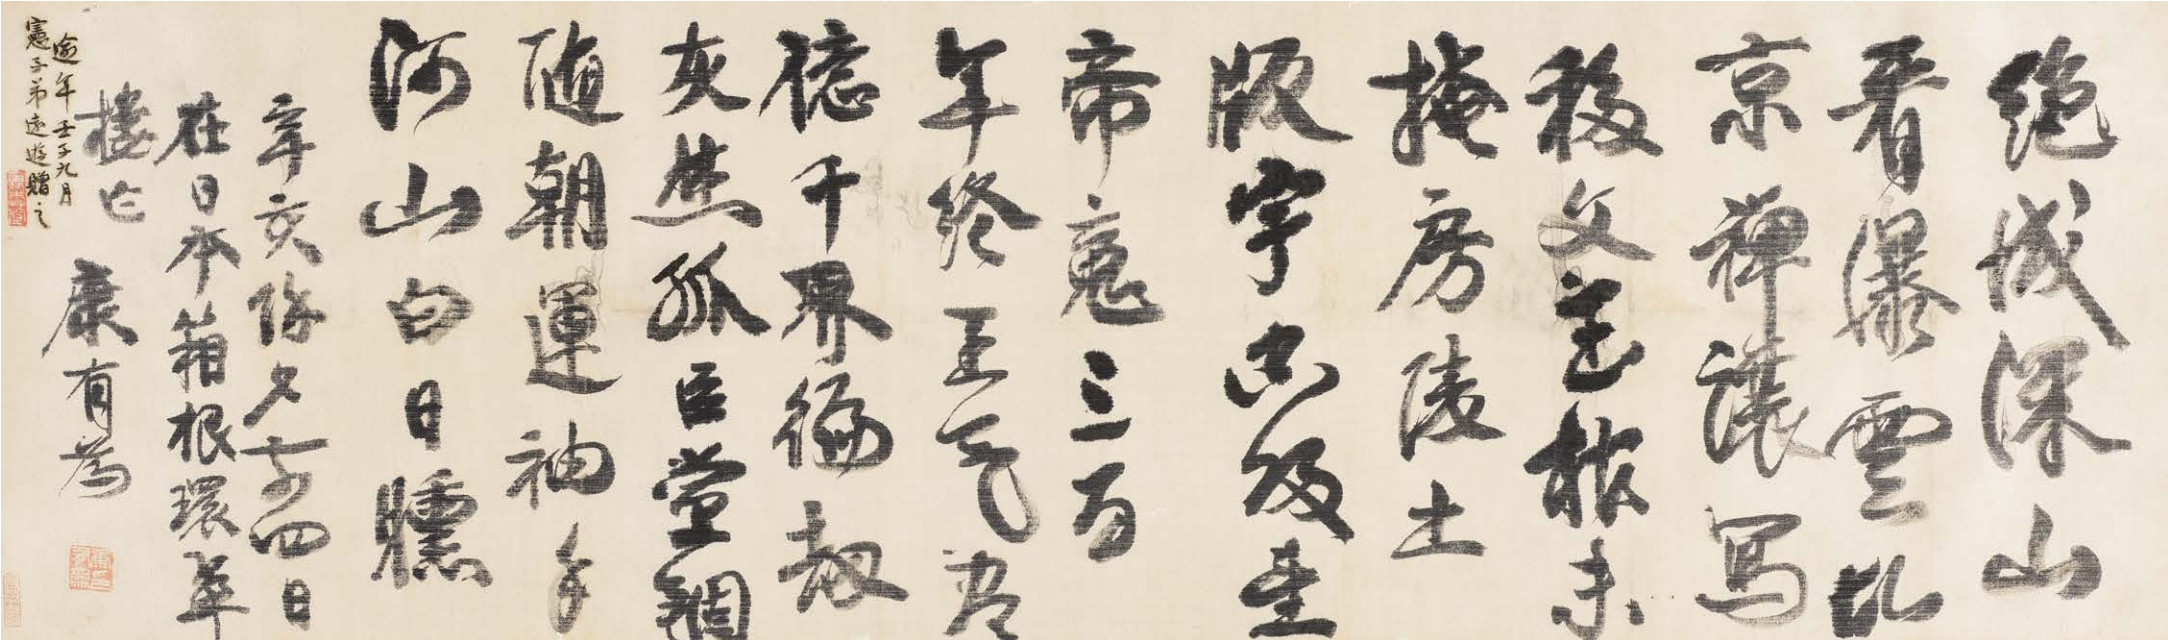 絕域深山
看瀑雲北
京禪讓寫
移文 未
掩房陵土
版宇 望
帝魂三百
年終王氣盡
億千界徧劫
灰焚孤臣黨錮
隨朝運袖手
河山白日曛
辛亥除夕前四日
在日本箱根環翠
樓作 康有為
逾年壬子九月
憲子弟遠遊贈之